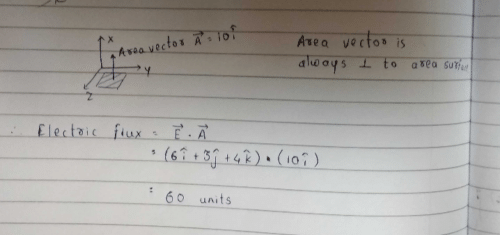 X
Area vector A⃗ = 10î
Y
Z
Area vector is
always ⊥ to area
∴ Electric flux = E⃗ . A⃗
= (6î + 3ĵ + 4k̂) • (10î)
= 60 units